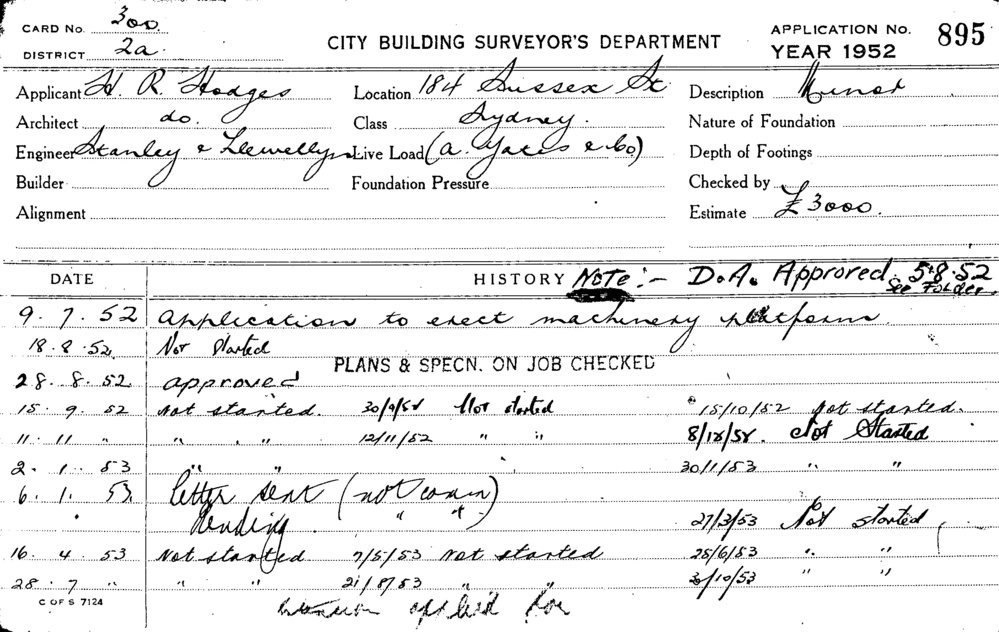 CARD No. 300.
DISTRICT 2a.
CITY BUILDING SURVEYOR'S DEPARTMENT
APPLICATION No. 895
YEAR 1952
Applicant H. R. Hodges Location 184 Sussex St Description Minor
Architect do. Class Sydney. Nature of Foundation
Engineer Stanley & Llewellyn Live Load (A. Yates & Co) Depth of Footings
Builder Foundation Pressure Checked by
Alignment Estimate £3000.
DATE HISTORY NOTE:- D.A. Approved 5.8.52
See Folder.
9.7.52 Application to erect machinery platform
18.8.52 Not started
PLANS & SPECN. ON JOB CHECKED
28.8.52 approved
15.9.52 Not started. 30/9/52 Not started 15/10/52 Not started.
11.11 " " " 12/11/52 " " 8/12/52. Not Started
2.1.53 " " 30/1/53 " "
6.1.53 letter sent (not comm)
pending " " 27/3/53 Not started
16.4.53 Not started 7/5/53 Not started 25/6/53 " "
28.7 " " " 21/8/53 " " 30/10/53 " "
C OF S 7124
applied for